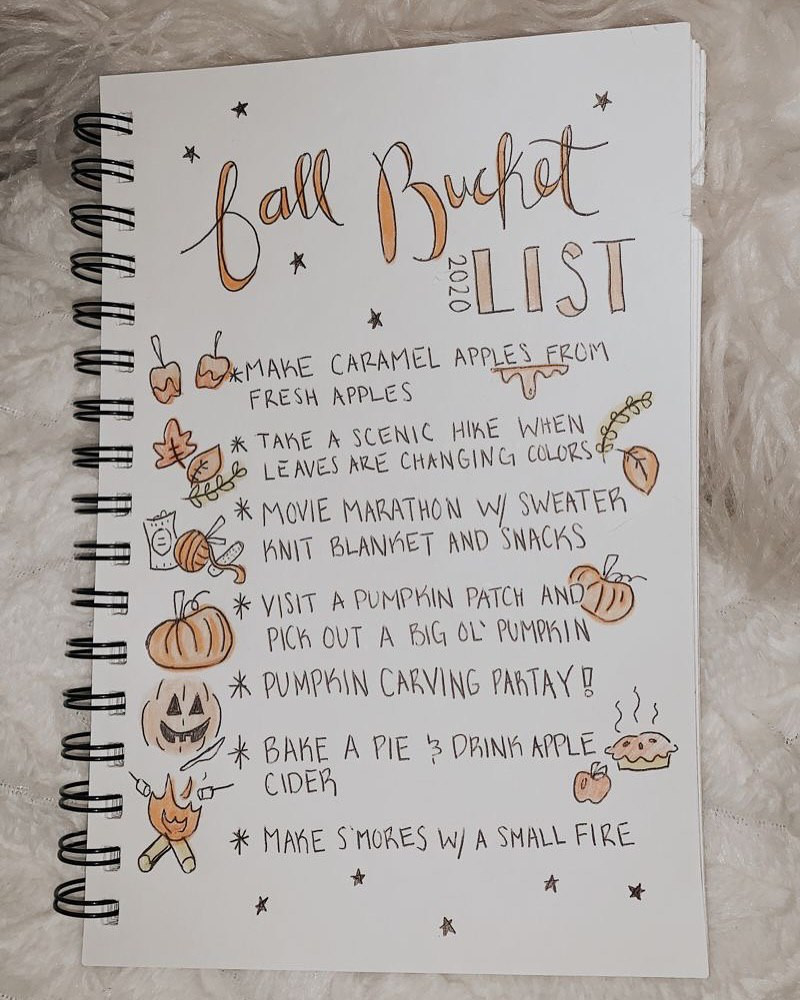 fall Bucket
2020 LIST
* MAKE CARAMEL APPLES FROM
FRESH APPLES
* TAKE A SCENIC HIKE WHEN
LEAVES ARE CHANGING COLORS
* MOVIE MARATHON W/ SWEATER
KNIT BLANKET AND SNACKS
* VISIT A PUMPKIN PATCH AND
PICK OUT A BIG OL' PUMPKIN
* PUMPKIN CARVING PARTAY!
* BAKE A PIE & DRINK APPLE
CIDER
* MAKE S'MORES W/ A SMALL FIRE